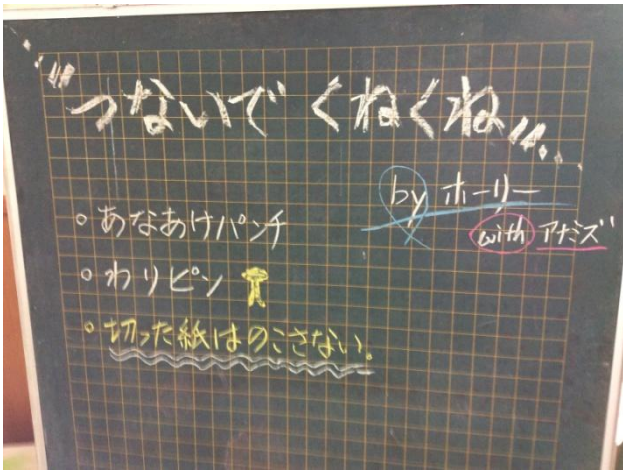 "つないで くねくね"...
by ホーリー
with アナミズ
。あなあけパンチ
。わりピン
。切った紙はのこさない。